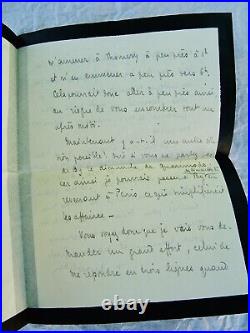 m'amener à Thomery à peu près à 4h
et m'en emmener à peu près vers 6h.
Cela pourrait donc aller à peu près ainsi
au risque de vous encombrer tout un
après midi.
Maintenant y a-t-il un autre
non possible! Si vous ne
de By le dimanche de
ainsi je pourrais
revenant à Paris ce qui simplifierait
les affaires —
Vous voyez donc que je vais vous de-
mander un grand effort, celui de
me répondre en trois lignes quand